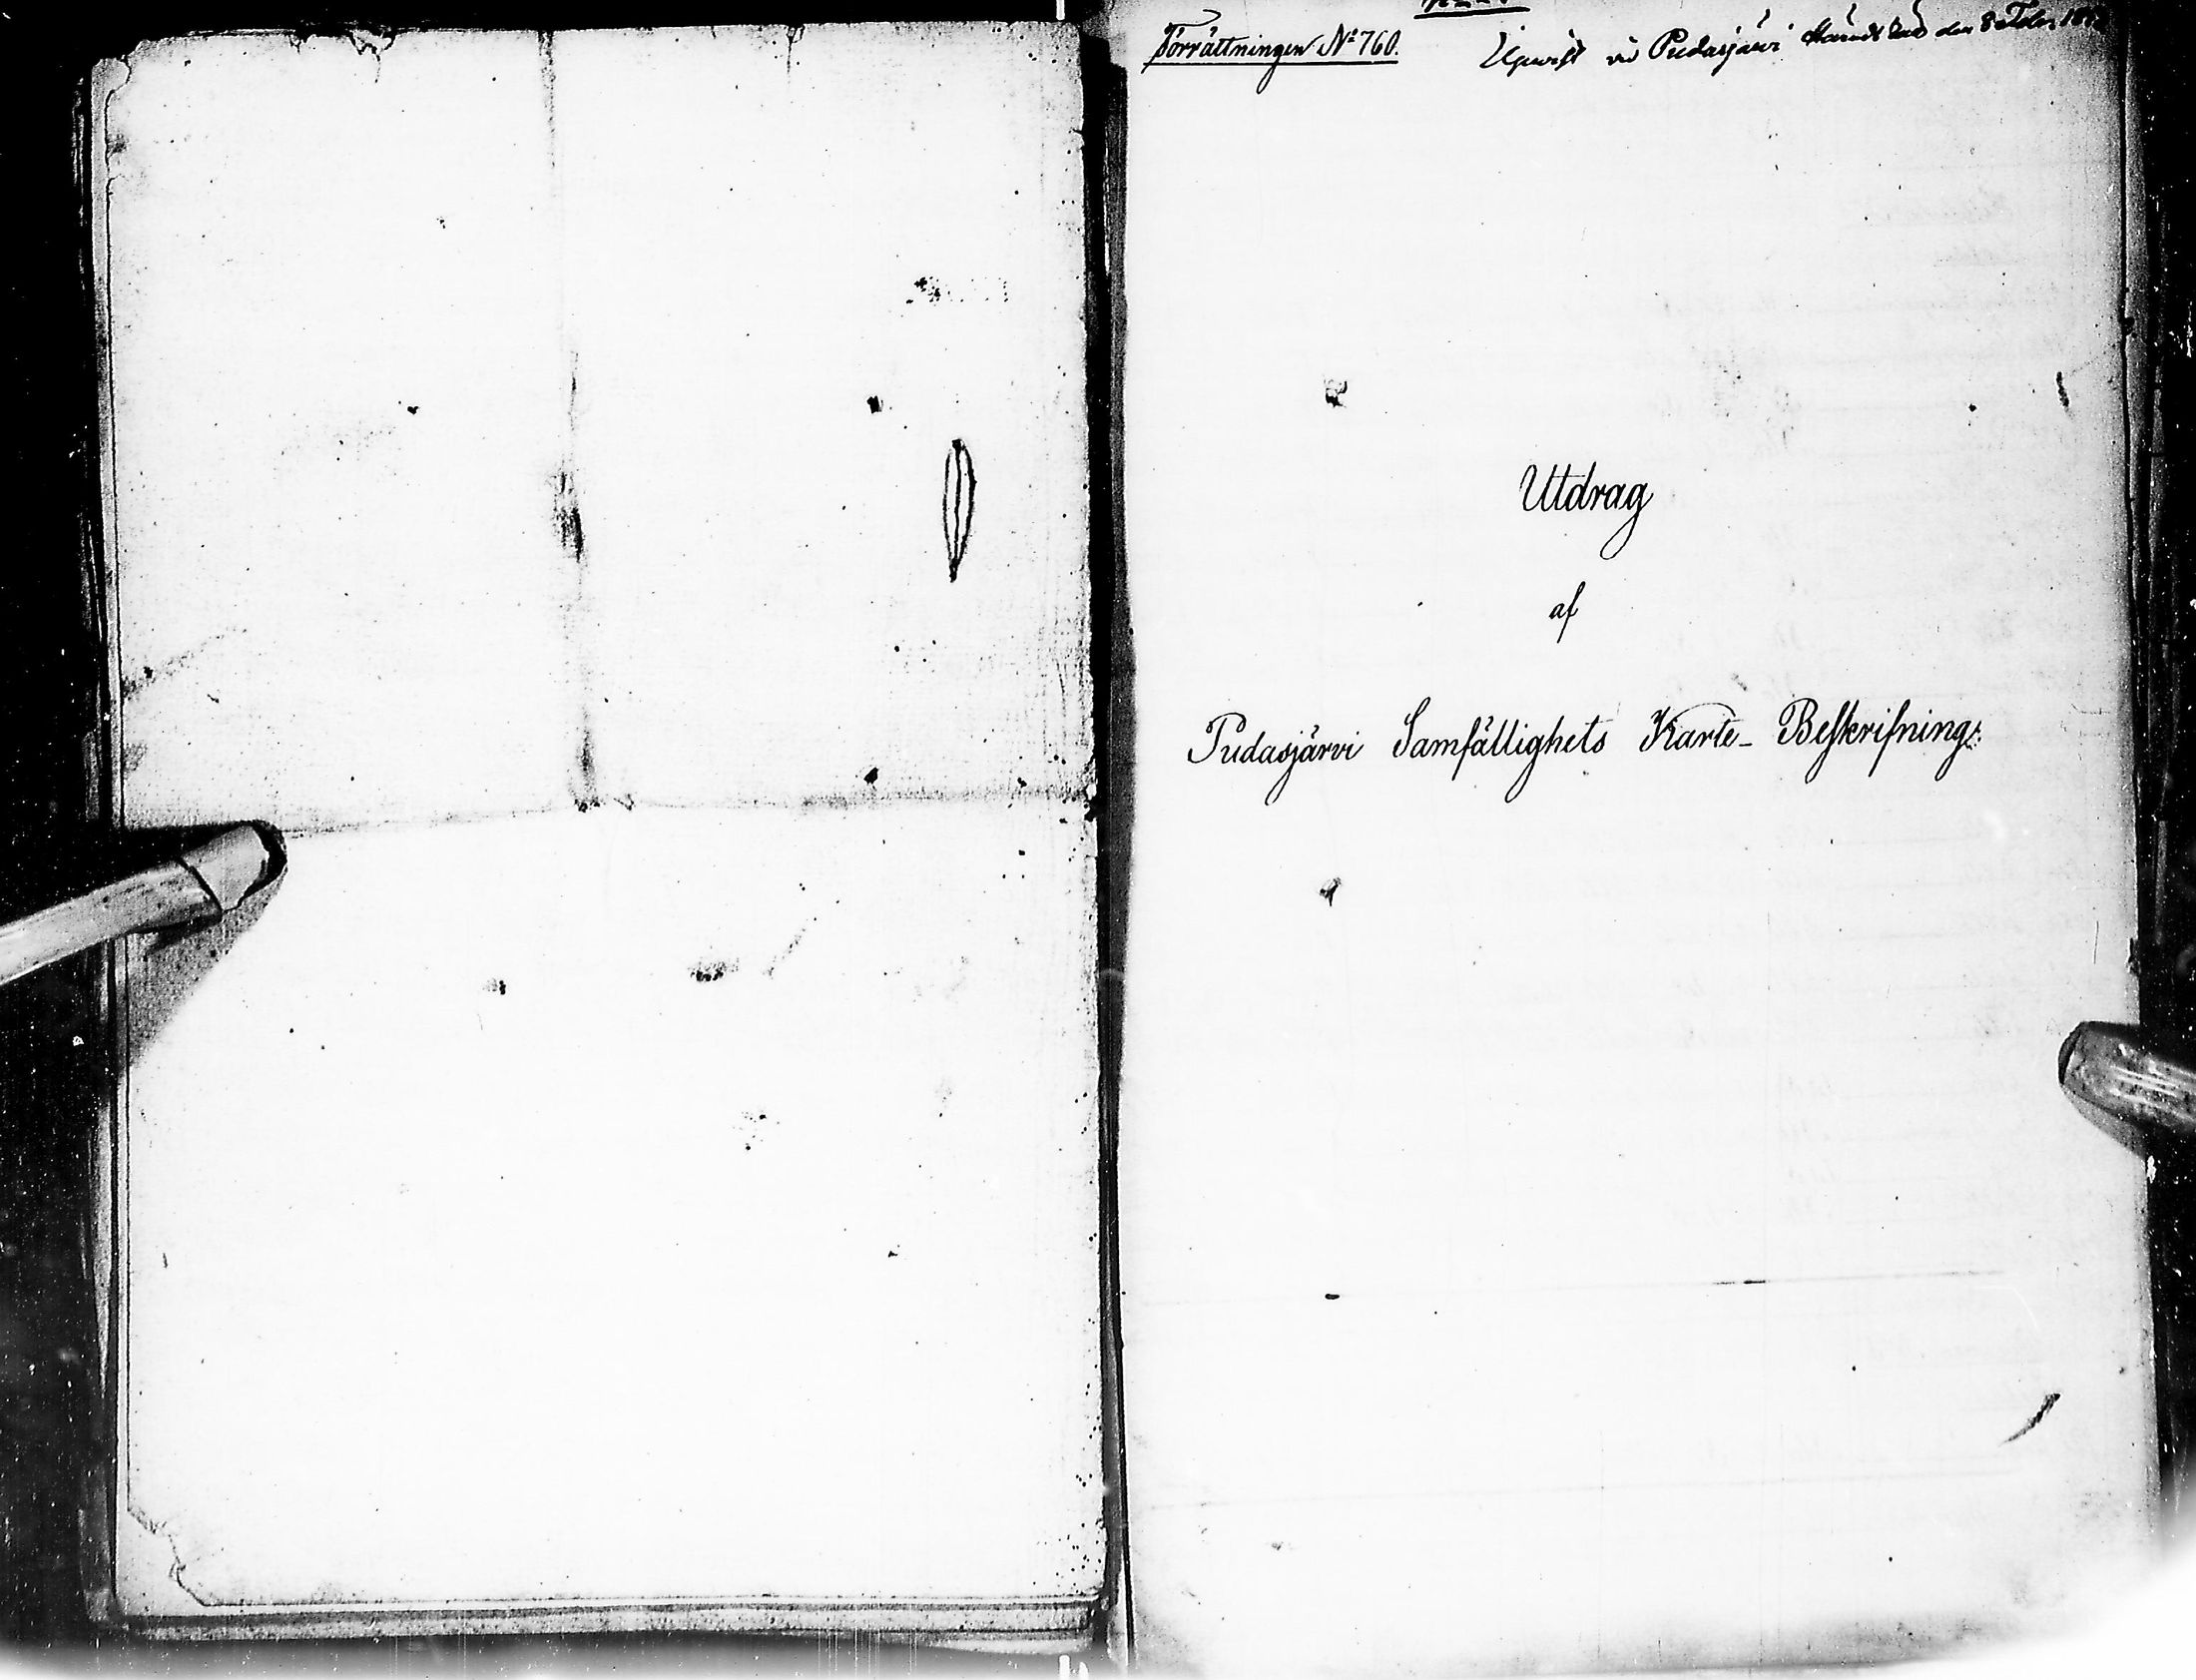 Förrättningen № 760.
Upvist vid Pudasjärvi den 8 Febr. 18
Utdrag
af
Pudasjärvi Samfällighets Karte-Beskrifning: